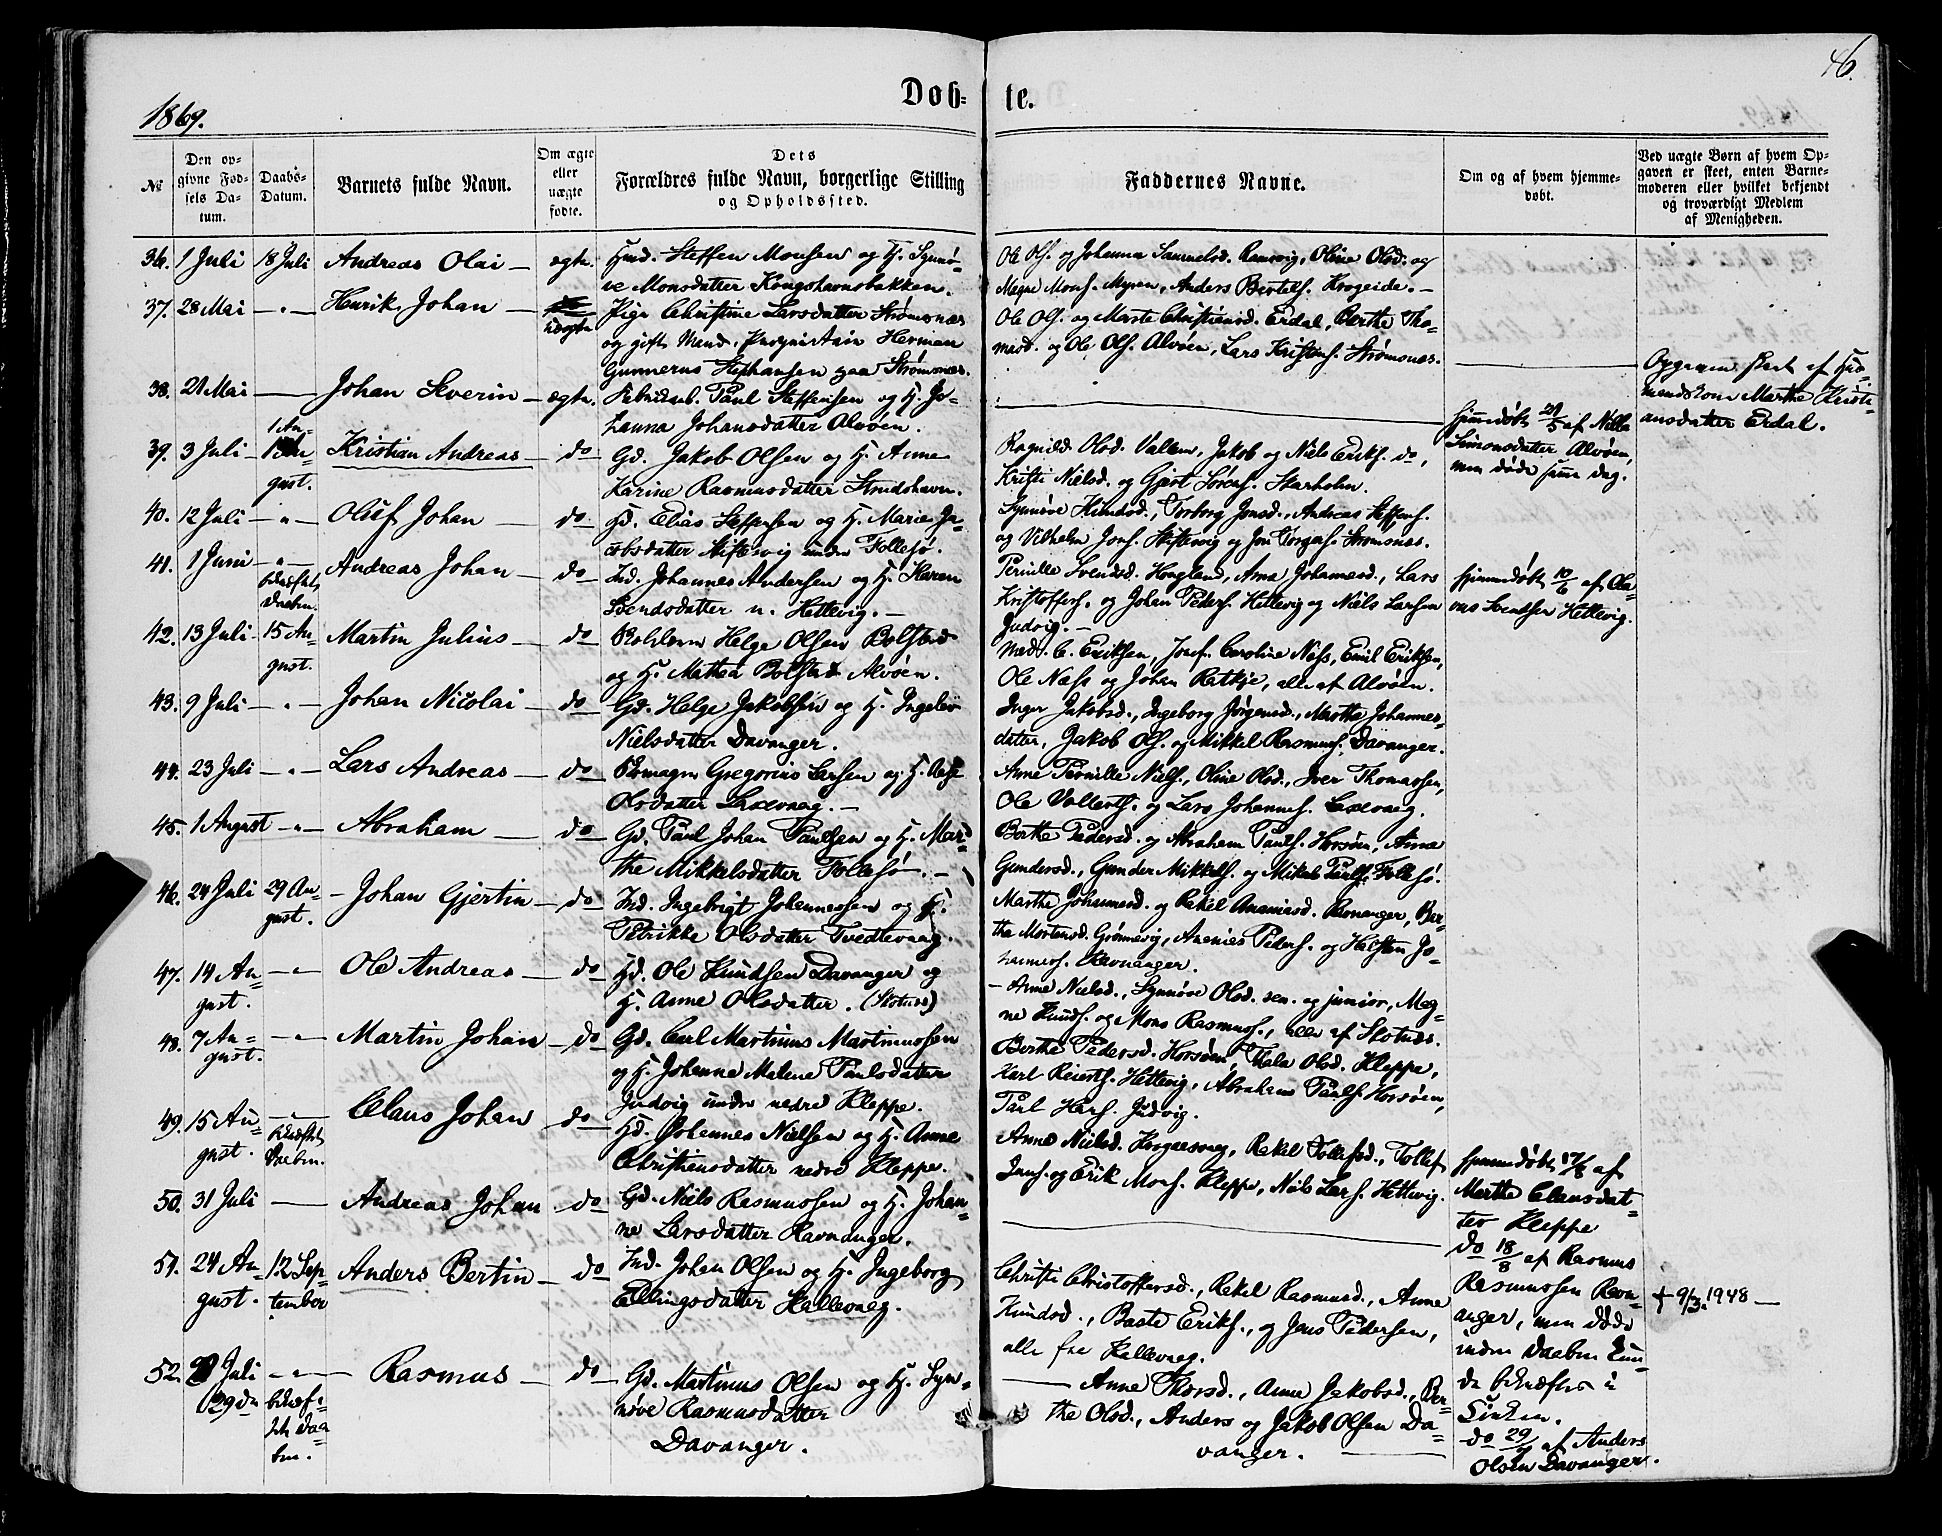 1869.
Døb-
te.
46.
№
Den op-
givne Fød-
sels Da-
tum.
Daabs-
Datum.
Barnets fulde Navn.
Om ægte
eller
uægte
fødte.
Dets
Forældres fulde Navn, borgerlige Stilling
og Opholdssted.
Faddernes Navne.
Om og af hvem hjemme-
døbt.
Ved uægte Børn af hvem Op-
gaven er skeet, enten Barne-
moderen eller hvilket bekjendt
og troværdigt Medlem
af Menigheden.
36. 1 Juli 18 Juli Andreas Olai ægte.
Hmd. Steffen Monsen og H. Synnø-
ve Monsdatter Kongshavnsbakken.
Ole Ols. og Johanna Samuelsd. Ramsvig, Oline Olsd. og
Magne Mons. Myren, Anders Bertels. Krogeide.
37. 28 Mai — " — Henrik Johan
uægte
Pige Christine Larsdatter Strømsnæs
og gift Mand, Herman
Gunnerus Stephansen paa Strømsnæs.
Ole Ols. og Marte Christensd. Erdal, Berthe Tho-
masd. og Ole Ols. Alvøen, Lars Kristens. Strømsnæs.
Opgaven skeet af
Marthe Kristi-
ansdatter Erdal.
38. 21 Mai — Johan Severin — ægte.
Fabrikarb. Paul Steffensen og H. Jo-
hanna Johansdatter Alvøen.
hjemmedøbt 21/5 af Nille
Simonsdatter Alvøen,
men døde samme Dag.
39. 3 Juli 1 Au-
gust. Kristian Andreas do
Gd. Jakob Olsen og H. Anne
Karine Rasmusdatter Strudshavn.
Ragnild Olsd. Vallem, Jakob og Niels Eriks. do,
Kristi Nielsd. og Gjert Sørens. Skarholm.
40. 12 Juli — " — Oluf Johan — do
Gd. Elias Steffensen og H. Marie Ja-
cobsdatter Skiftesvig under Follesø.
Synnøve Knudsd., Torborg Jonsd., Andreas Steffens.
og Vilhelm Jons. Skiftesvig og Jon Torgers. Strømsnæs.
41. 1 Juni — " —
bekræftet
Daaben. Andreas Johan — do
Ind. Johannes Andersen og H. Karen
Svendsdatter n. Hettevig.
Pernille Svendsd. Hougland, Anna Johannesd., Lars
Kristoffers. og Johan Peders. Hettevig og Niels Larsen
Judvig.
hjemmedøbt 10/6 af Ola-
vus Svendsen Hettevig.
42. 13 Juli 15 Au-
gust. Martin Julius — do
Helge Olsen Bolstad
og H. Mathea Bolstad Alvøen.
Mad. C. Eriksen, Josef. Caroline Næss, Emil Eriksen,
Ole Næss og Johan Ratkje, alle af Alvøen.
43. 9 Juli — " — Johan Nicolai — do
Gd. Helge Jakobsen og H. Ingeleiv
Nielsdatter Davanger.
Inger Jakobsd., Ingeborg Jørgensd., Martha Johannes-
datter, Jakob Ols. og Mikkel Rasmuss. Davanger.
44. 23 Juli — " — Lars Andreas — do
Gregorius Larsen og H. Aase
Olsdatter Laxevaag.
Anne Pernille Niels., Oline Olsd., Iver Thomassen,
Ole Vallerts. og Lars Johannes. Laxevaag.
45. 1 August — " — Abraham — do
Gd. Paul Johan Paulsen og H. Mar-
the Mikkelsdatter Follesø.
Berthe Pedersd. og Abraham Pauls. Horsøen, Anna
Gundersd., Gunder Mikkels. og Mikal Pauls. Follesø.
46. 24 Juli 29 Au-
gust. Johan Gjertin — do
Ind. Ingebrigt Johannessen og H.
Petrikke Olsdatter Tvedtevaag.
Marthe Johannesd. og Rakel Ananiasd. Ravnanger, Ber-
the Mortensd. Grønnevig, Ananias Peders. og Halsten Jo-
hanness. Ravnanger.
47. 14 Au-
gust. — " — Ole Andreas — do
Gd. Ole Knudsen Davanger og
H. Anne Olsdatter. (Slotnæs)
Anne Nielsd., Synnøve Olsd. sen. og junior, Mag-
ne Knuds. og Mons Rasmuss., alle af Slotnæs.
48. 7 Au-
gust. — " — Martin Johan — do
Gd. Carl Martinus Martinussen
og H. Johanne Malene Paulsdatter
Judvig under nedre Kleppe.
Berthe Pedersd. Horsøen, Thala Olsd. Kleppe,
Karl Reierts. Hettevig, Abraham Pauls. Horsøen,
Paul Hans. Judvig.
49. 15 Au-
gust. — " —
bekræftet
Daaben. Claus Johan do
Gd. Johannes Nielsen og H. Anne
Christiensdatter nedre Kleppe.
Anne Nielsd. Krogaasvaag, Rakel Tollefsd., Tollef
Jans. og Erik Mons. Kleppe, Niels Lars. Hettevig.
hjemmedøbt 17/8 af
Marthe Clausdat-
ter Kleppe
50. 31 Juli — Andreas Johan do
Gd. Niels Rasmussen og H. Johan-
ne Larsdatter Ravnanger.
do 18/8 af Rasmus
Rasmussen Ravn-
anger, men døde
inden Daaben kun-
de bekræftes i
Kirken.
51. 24 Au-
gust. 12 Sep-
tember Anders Bertin — do
Ind. Johan Olsen og H. Ingeborg
Ellingsdatter Hallevaag.
Christi Christoffersd., Rakel Rasmusd., Anne
Knudsd., Baste Eriks., og Jens Pedersen,
alle fra Hallevaag.
† 9/3.1948 —
52. Juli
(29de — " —
bekræf-
tet Daa-
ben. Rasmus — do
Gd. Martinus Olsen og H. Syn-
nøve Rasmusdatter
Davanger.
Anne Thorsd., Anna Jakobsd., Ber-
the Olsd., Anders og Jakob Olsen Da-
vanger.
do 29/7 af Anders
Olsen Davanger.